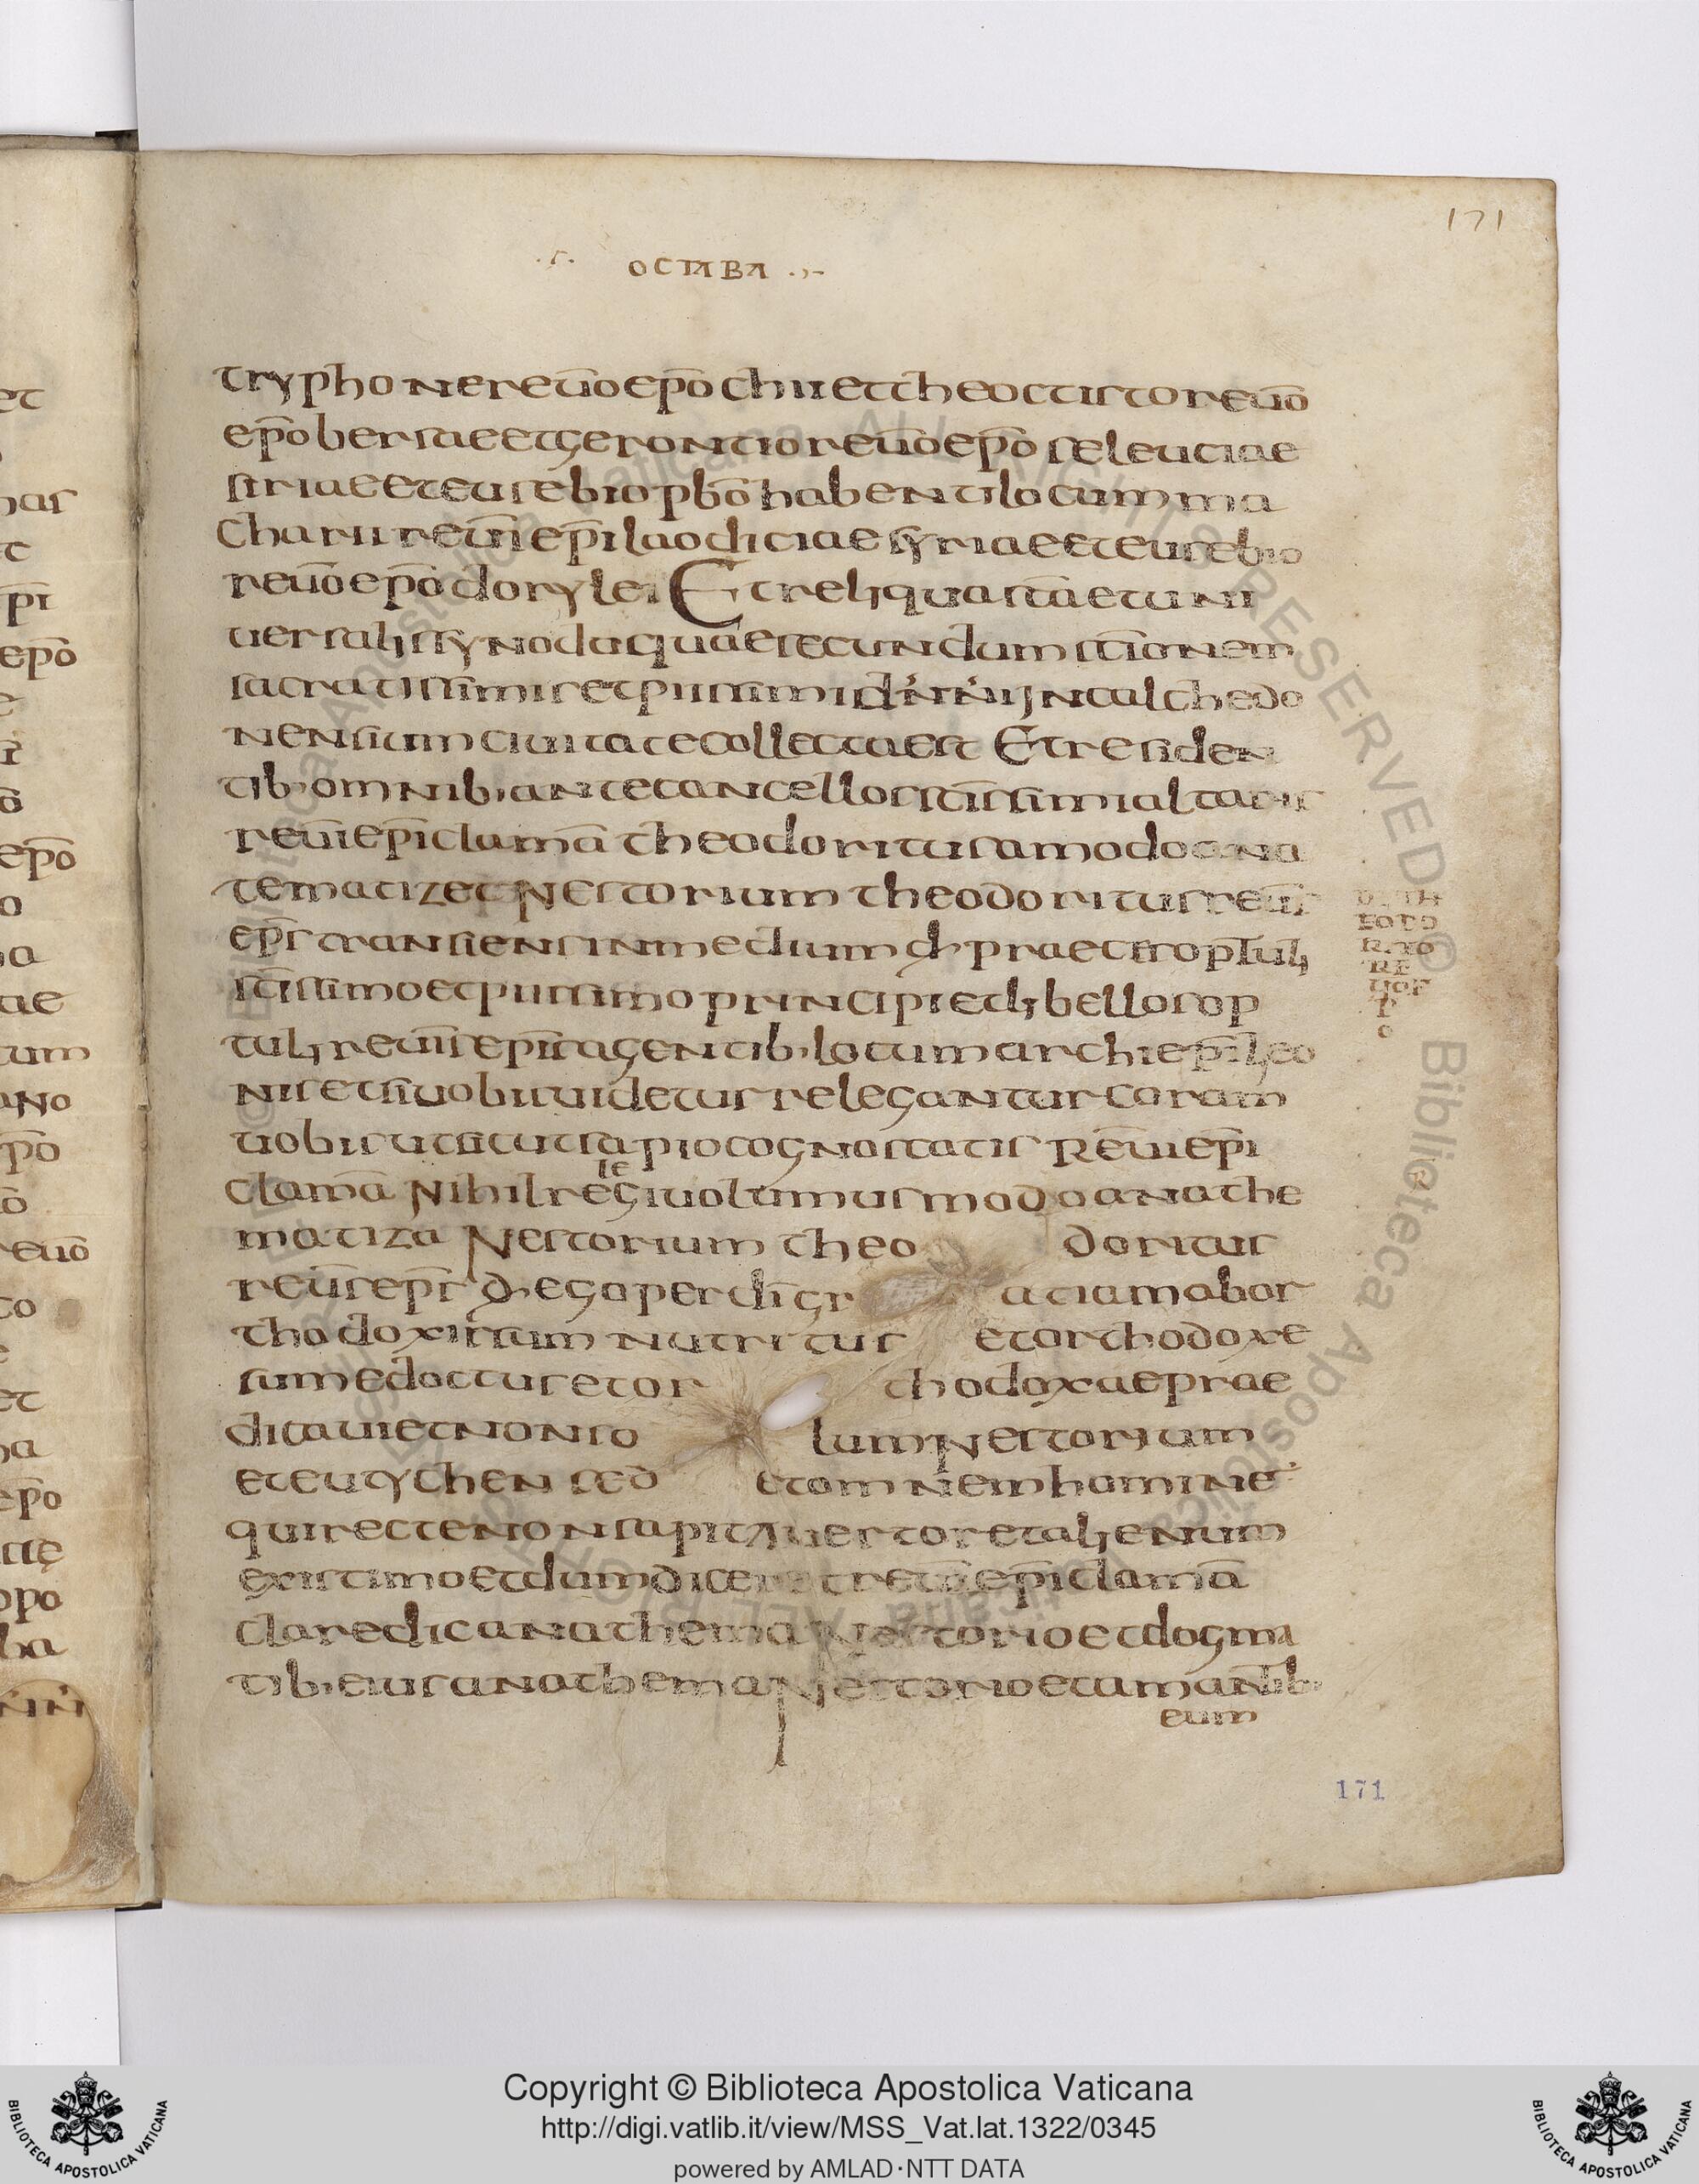 171
OCTABA
tryphone reūo epō chii et theoctisto reūo
epō beriae et gerontio reūo epō seleuciae
siriae et eusebio pbō habenti locum ma
charii reūi epi laodiciae syriae et eusebio
reūo epō dorylei Et reliqua scā et uni
uersali synodo quae secundum sc̄ionem
sacratissimi et piissimi dn̄i n̄i in calchedo
nensium ciuitate collecta est Et residen
tib· omnib· ante cancellos sc̄issimi altaris
reūi ep̄i clamā theodoritus amodo ana
tematizet Nestorium theodoritus reūs
ep̄s transiens in medium d̄· praeces optuli
sc̄issimo et piissimo principi et libellos op
tuli reūis ep̄is agentib· locum archiep̄i leo
nis et si uobis uidetur relegantur coram
uobis ut sicut sapio cognoscatis Reūi ep̄i
clamā Nihil relegi uolumus modo anathe
matiza Nestorium theodoritus
reūs ep̄s d̄· ego per dī gratiam ab or
thodoxis sum nutritus et orthodoxe
sum edoctus et orthodoxae prae
dicaui et non solum Nestorium
et eutychen sed et omnem hominē
qui recte non sapit Auertor et alienum
existimo et dum diceret reūi ep̄i clamā
clare dic anathema Nestorio et dogma
tib· eius anathema Nestorio et amantib·
eum
DE TH
EODO
RITO
RE
UOE
P
O
171
Copyright © Biblioteca Apostolica Vaticana
http://digi.vatlib.it/view/MSS_Vat.lat.1322/0345
powered by AMLAD·NTT DATA
BIBLIOTECA APOSTOLICA VATICANA
BIBLIOTECA APOSTOLICA VATICANA